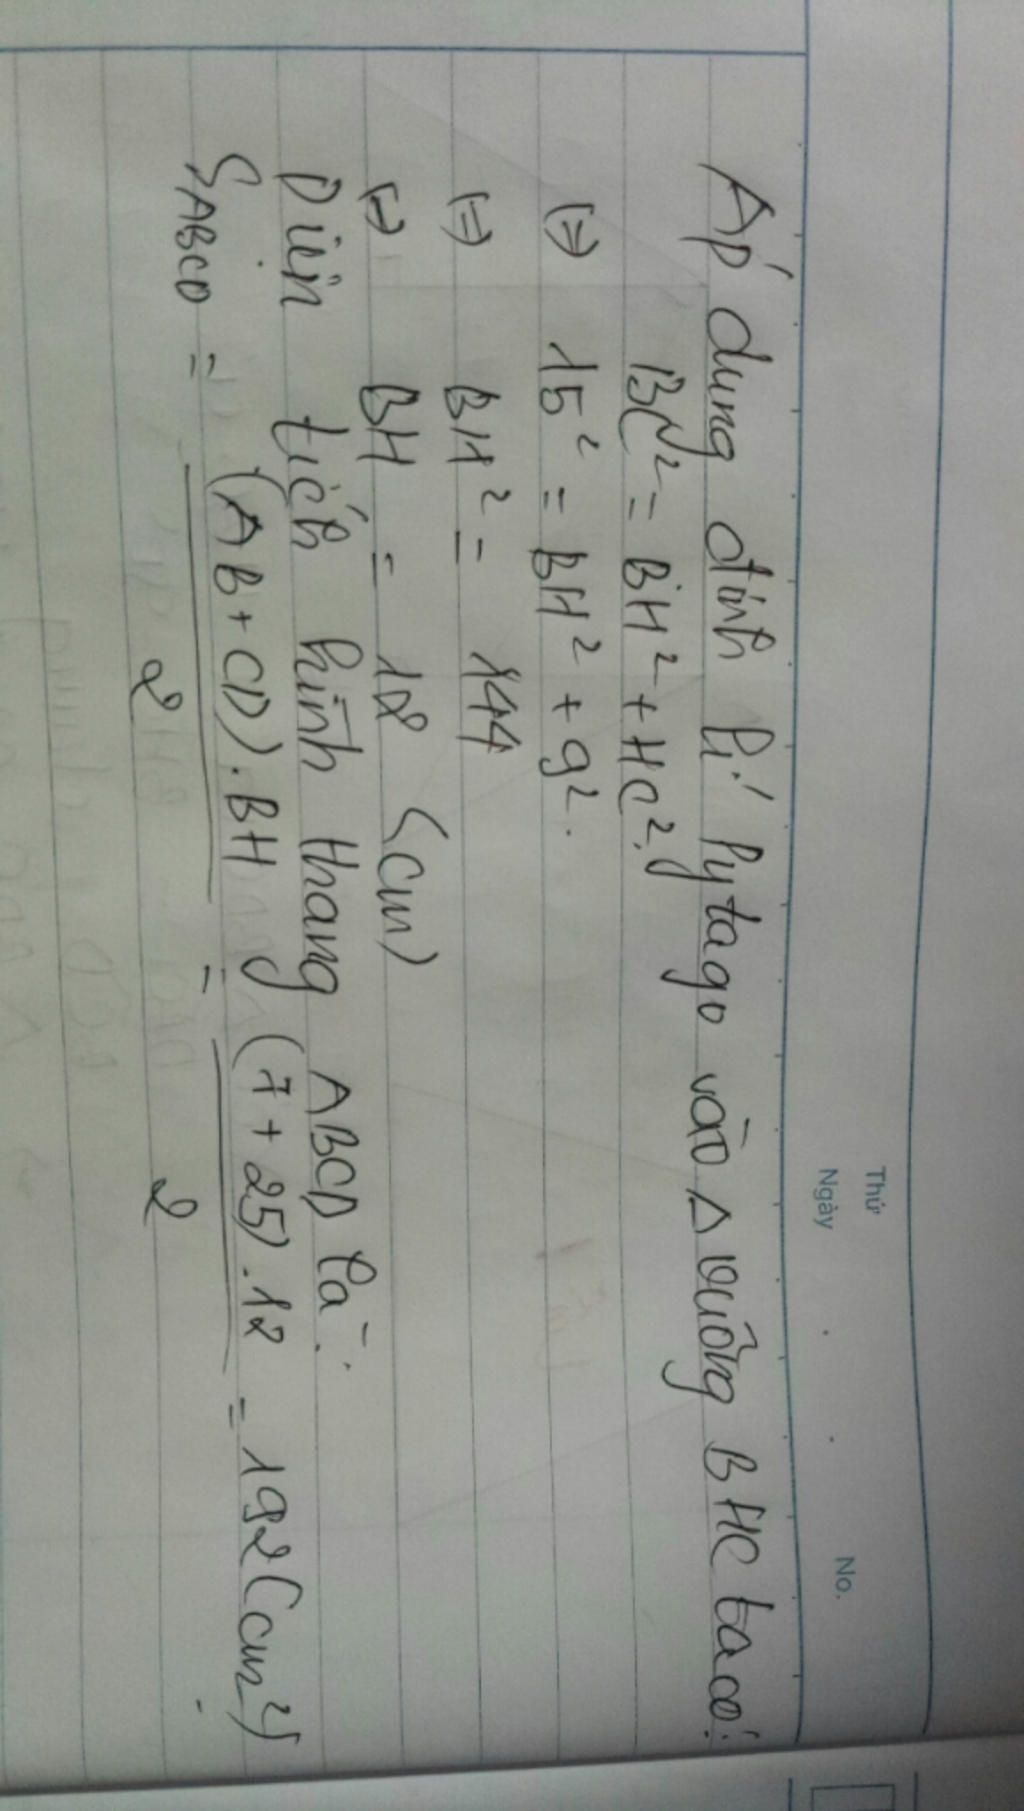 Thứ
Ngày
No.
Áp dụng định lí Pytago vào Δ vuông BHC ta có:
BC² = BH² + HC²
(=) 15² = BH² + 9².
(=) BH² = 144
(=) BH = 12 (cm)
Diện tích hình thang ABCD là:
S_ABCD = (AB + CD).BH / 2 = (7 + 25).12 / 2 = 192 (cm²)